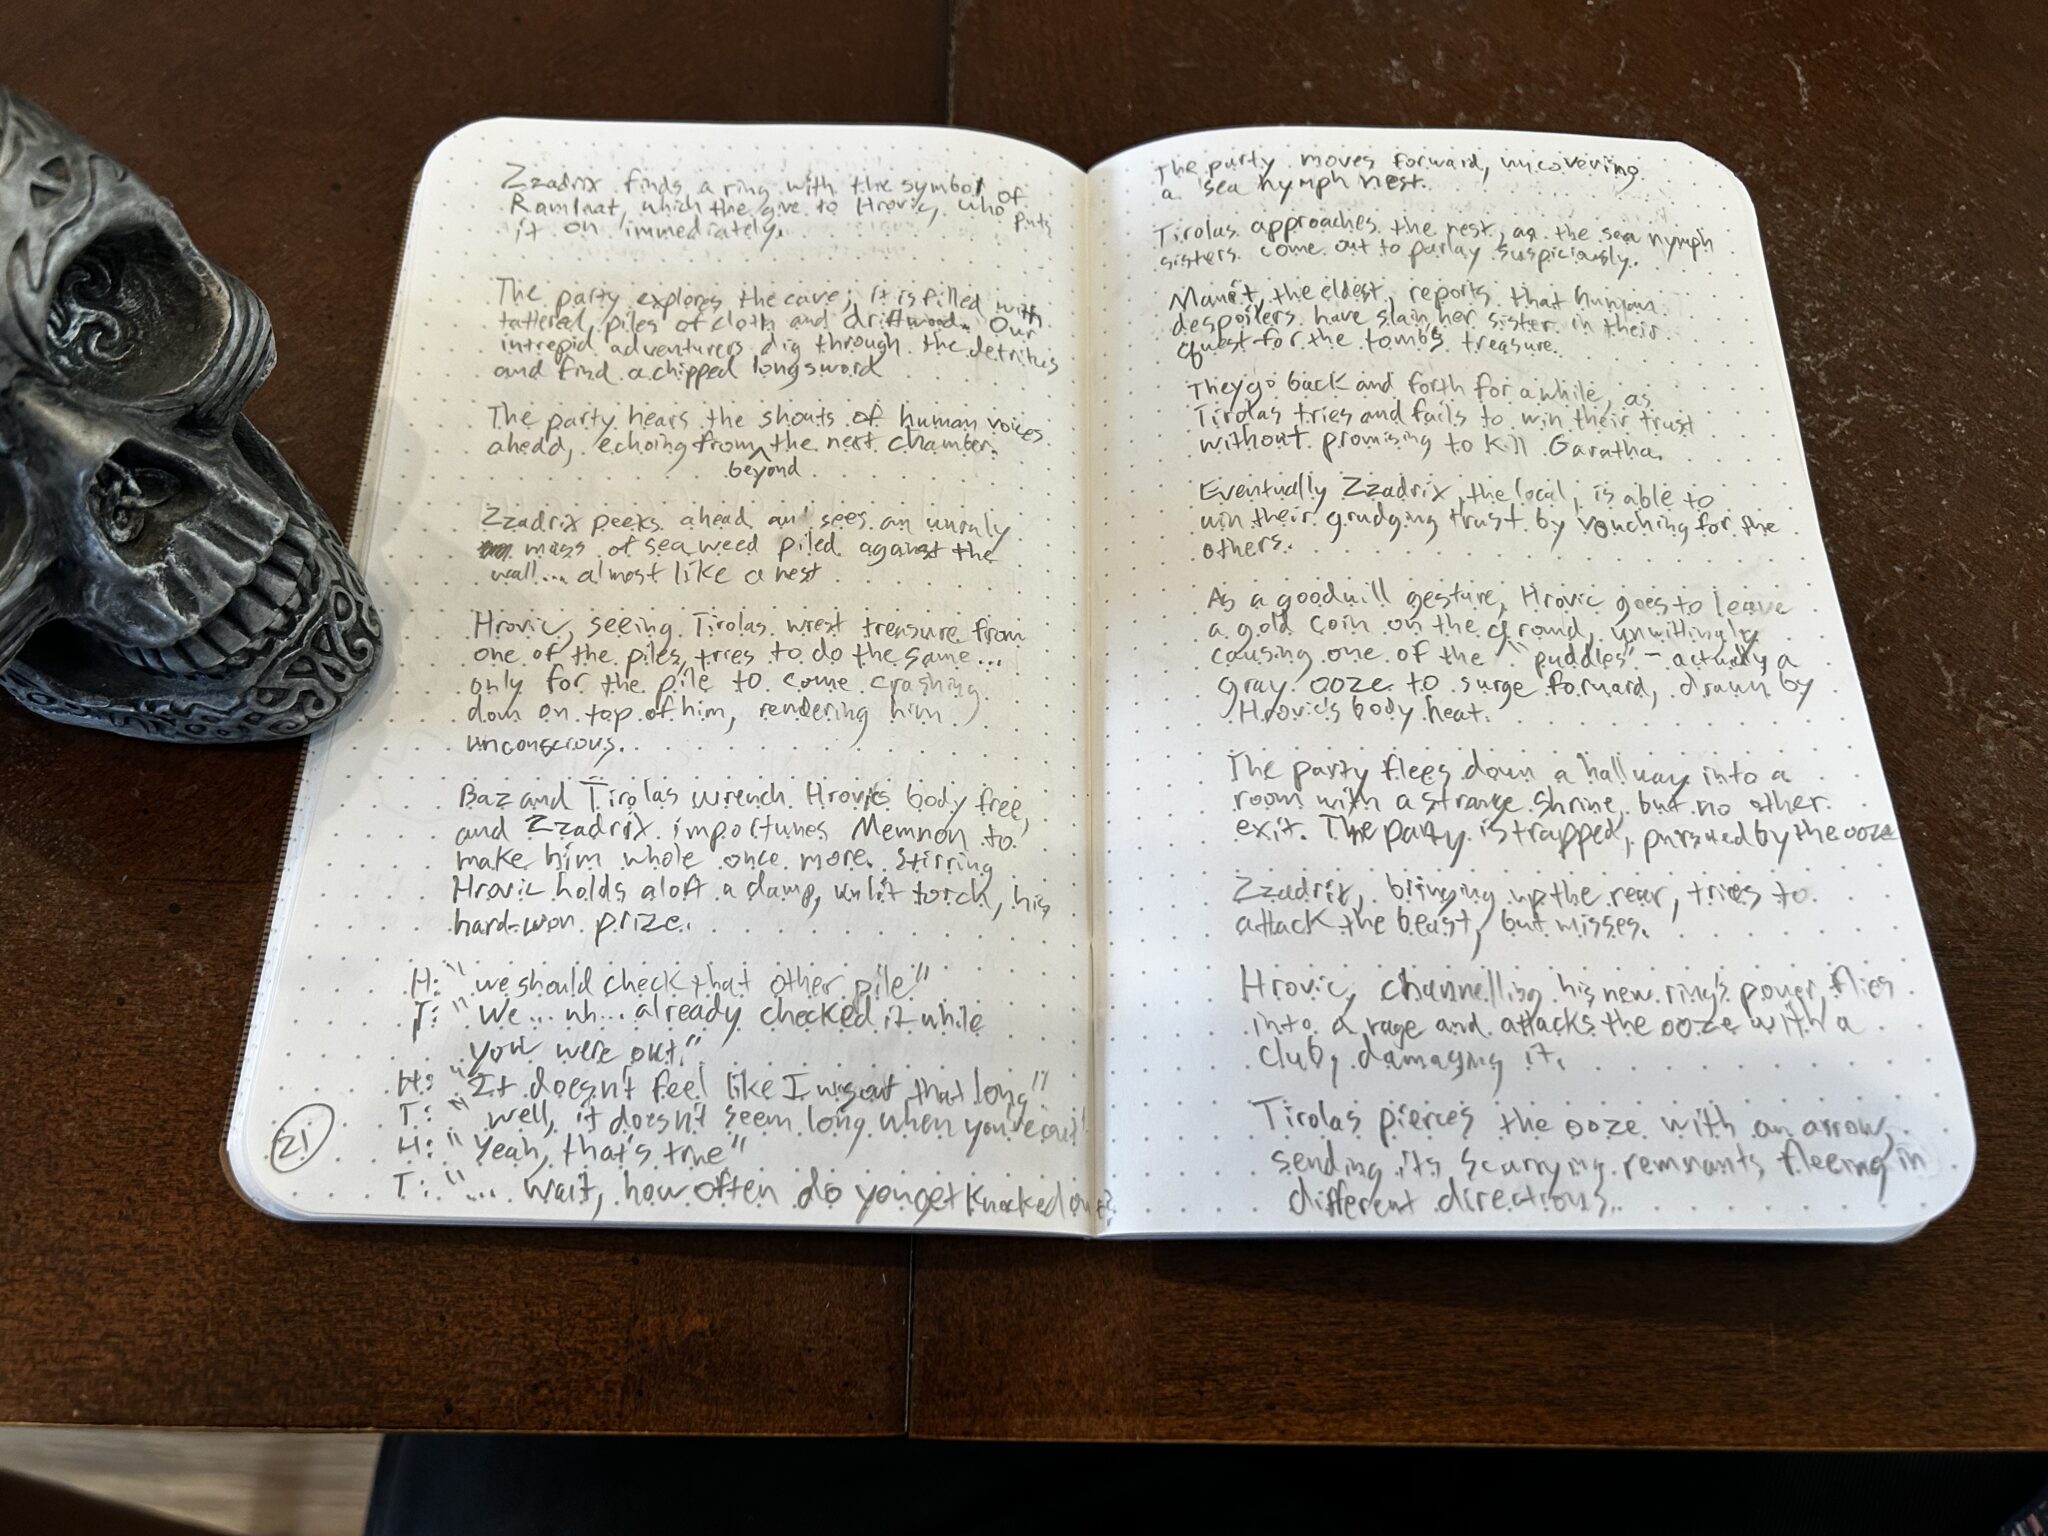 Zzadrix finds a ring with the symbol of
Ramlaat, which the give to Hrovic, who puts
it on immediately.
The party explores the cave; it is filled with
tattered piles of cloth and driftwood. Our
intrepid adventurers dig through the detritus
and find a chipped longsword
The party hears the shouts of human voices
ahead, echoing from beyond the next chamber.
Zzadrix peeks ahead an' sees an unruly
mass of seaweed piled against the
wall... almost like a nest
Hrovic, seeing Tirolas wrest treasure from
one of the piles, tries to do the same...
only for the pile to come crashing
down on top of him, rendering him
unconscious.
Baz and Tirolas wrench Hrovic's body free,
and Zzadrix importunes Memnon to
make him whole once more. Stirring
Hrovic holds aloft a damp, unlit torch, his
hard-won prize.
H: "we should check that other pile"
T: "We... uh... already checked it while
you were out."
H: "It doesn't feel like I was out that long"
T: "Well, it doesn't seem long when you're out"
H: "Yeah, that's true"
T: "... wait, how often do you get knocked out?
21
The party moves forward, uncovering
a sea nymph nest.
Tirolas approaches the nest, as the sea nymph
sisters come out to parlay suspiciously.
the eldest, reports that human
despoilers have slain her sister in their
quest for the tomb's treasure.
They go back and forth for awhile, as
Tirolas tries and fails to win their trust
without promising to kill Garatha.
Eventually Zzadrix, the local, is able to
win their grudging trust by vouching for the
others.
As a goodwill gesture, Hrovic goes to leave
a gold coin on the ground, unwittingly
causing one of the "puddles" - actually a
gray ooze to surge forward, drawn by
Hrovic's body heat.
The party flees down a hallway into a
room with a strange shrine, but no other
exit. The party is trapped, pursued by the ooze
Zzadrix, bringing up the rear, tries to
attack the beast, but misses.
Hrovic, channelling his new ring's power, flies
into a rage and attacks the ooze with a
club, damaging it.
Tirolas pierces the ooze with an arrow,
sending its scurrying remnants fleeing in
different directions.